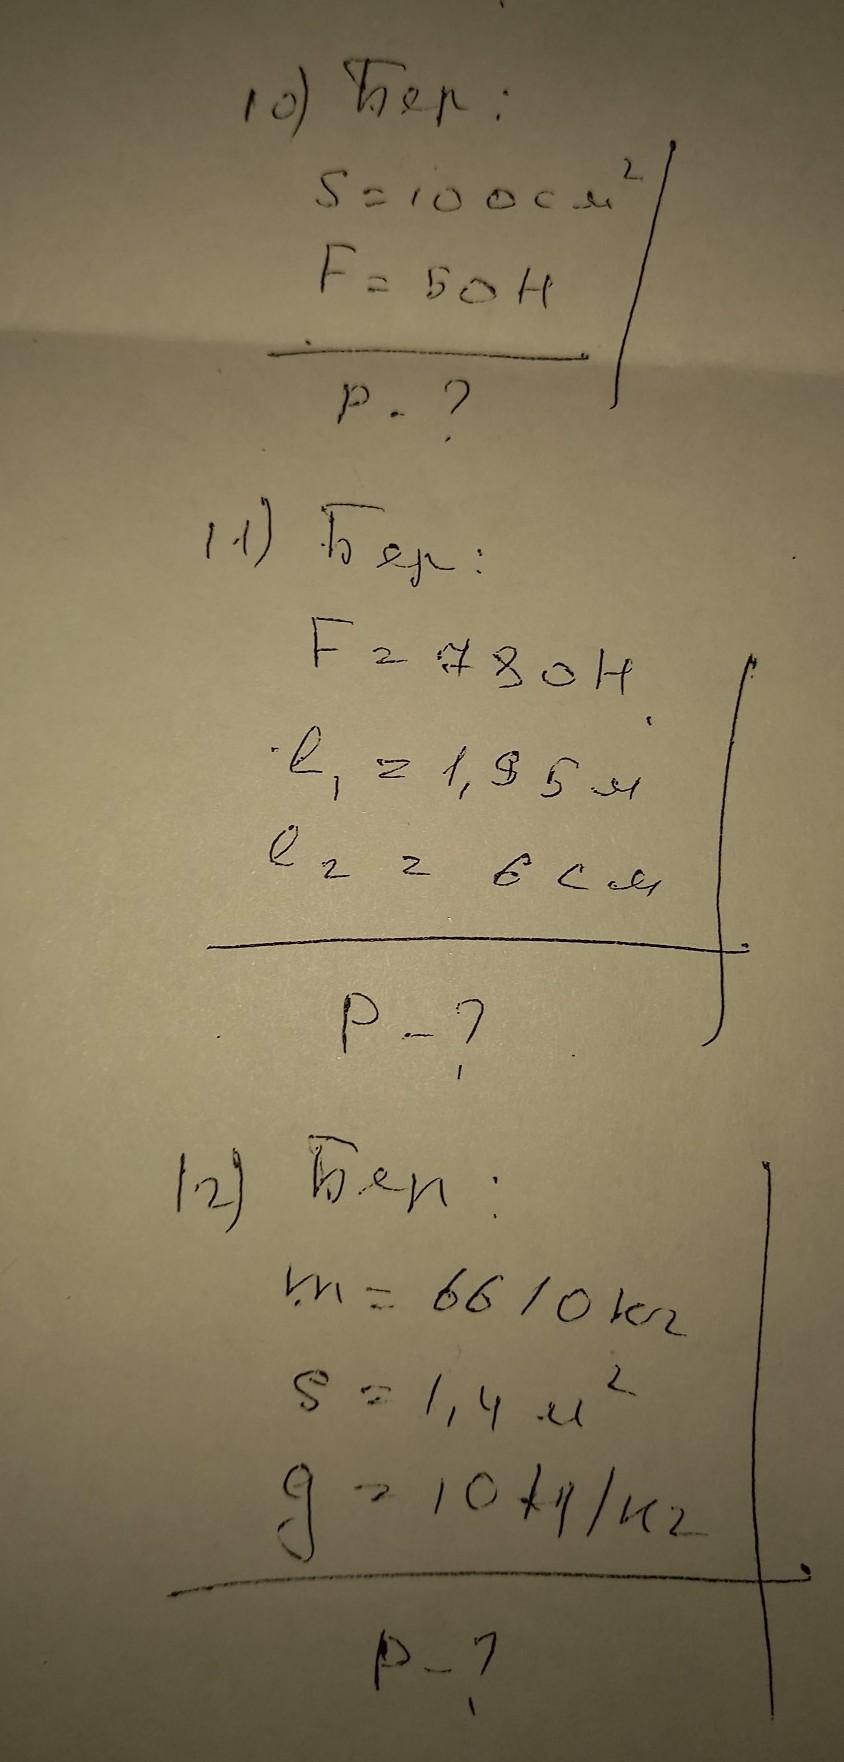 10) Бер:
S = 100 см²
F = 50 Н
P - ?
11) Бер:
F = 780 Н
l₁ = 1,95 м
l₂ = 6 см
P - ?
12) Бер:
m = 6610 кг
S = 1,4 м²
g = 10 Н/кг
P - ?